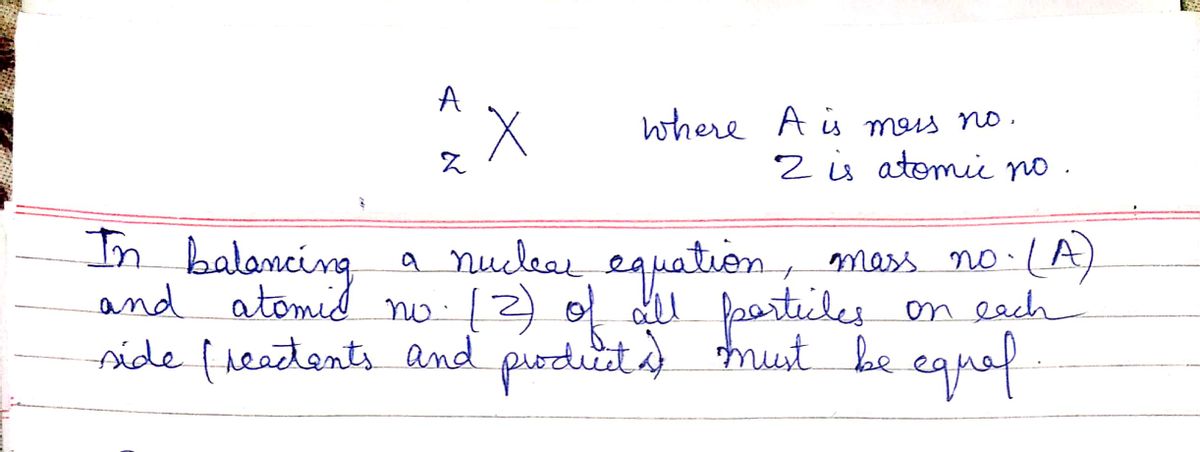 A
X where A is mass no.
Z Z is atomic no.
In balancing a nuclear equation, mass no. (A)
and atomic no. (Z) of all particles on each
side (reactants and products) must be equal.